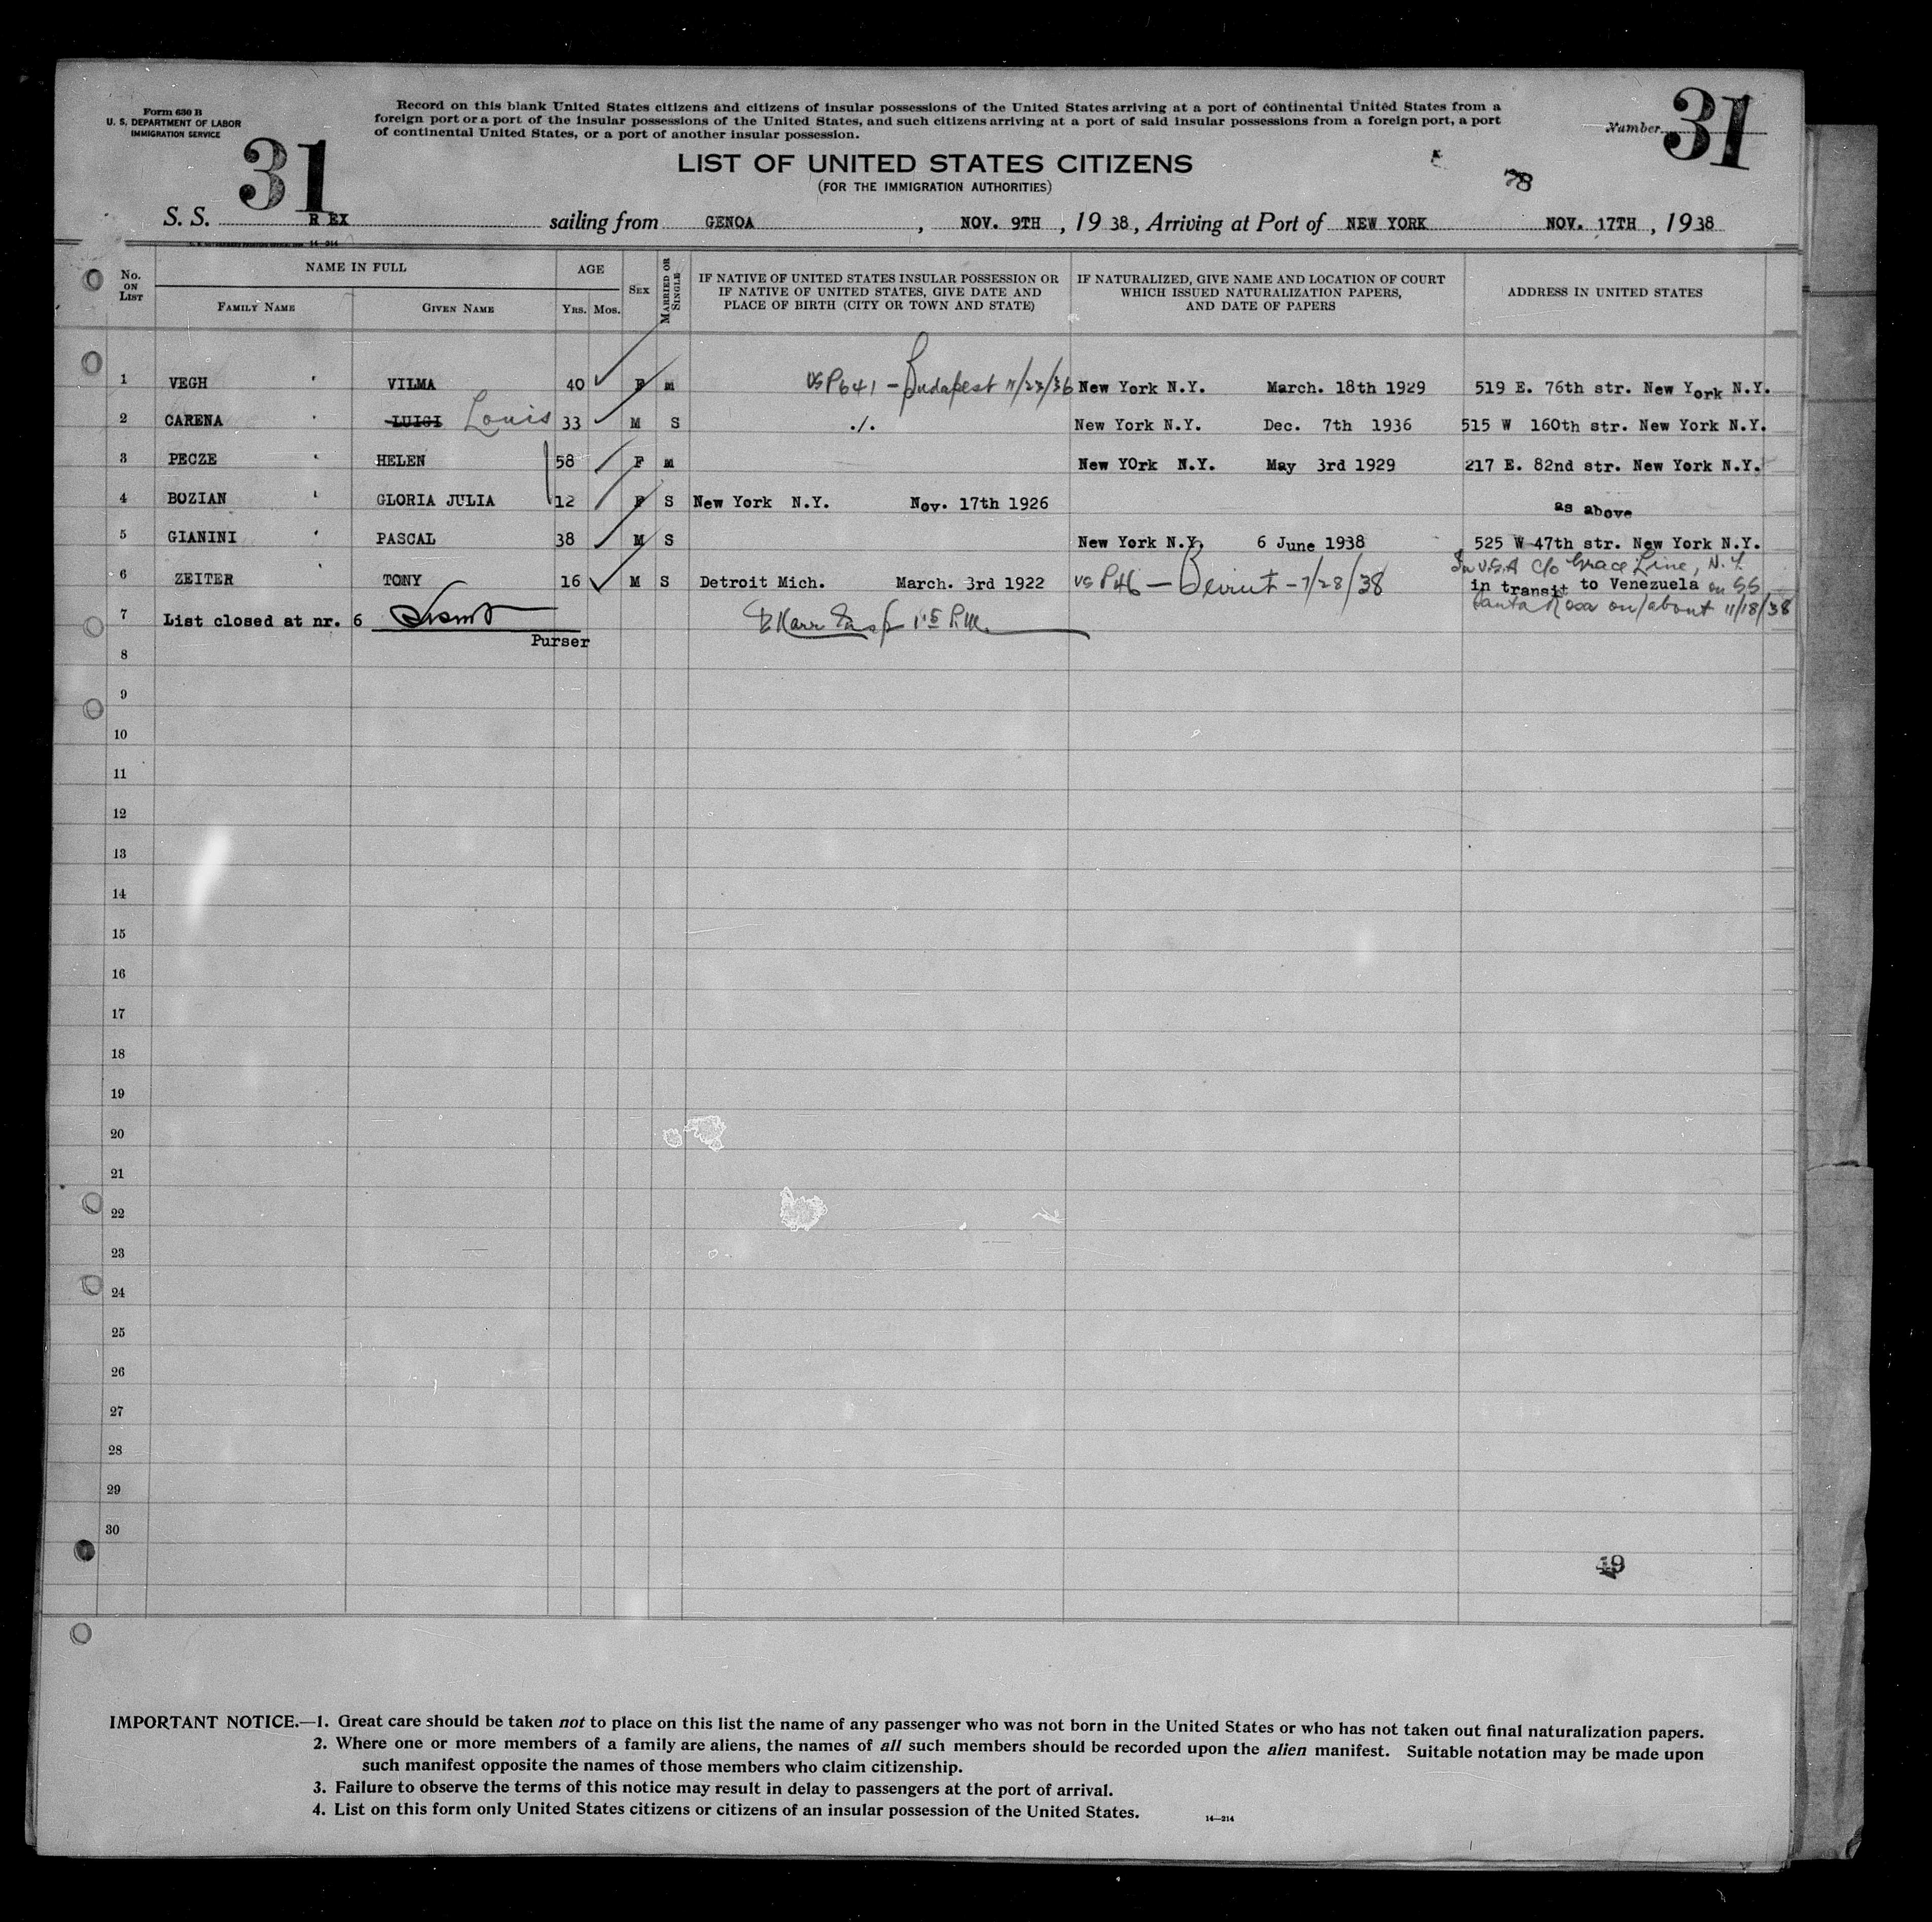 Form 630 B
U. S. DEPARTMENT OF LABOR
IMMIGRATION SERVICE
Record on this blank United States citizens and citizens of insular possessions of the United States arriving at a port of continental United States from a
foreign port or a port of the insular possessions of the United States, and such citizens arriving at a port of said insular possessions from a foreign port, a port
of continental United States, or a port of another insular possession.
Number 31
31
LIST OF UNITED STATES CITIZENS
(FOR THE IMMIGRATION AUTHORITIES)
78
S. S. R EX sailing from GENOA , NOV. 9TH , 19 38, Arriving at Port of NEW YORK NOV. 17TH , 19 38
14—214
No. ON LIST
NAME IN FULL
FAMILY NAME GIVEN NAME
AGE
YRS. MOS.
SEX
MARRIED OR SINGLE
IF NATIVE OF UNITED STATES INSULAR POSSESSION OR
IF NATIVE OF UNITED STATES, GIVE DATE AND
PLACE OF BIRTH (CITY OR TOWN AND STATE)
IF NATURALIZED, GIVE NAME AND LOCATION OF COURT
WHICH ISSUED NATURALIZATION PAPERS,
AND DATE OF PAPERS
ADDRESS IN UNITED STATES
1 VEGH VILMA 40 F m USP641 - Budapest 11/23/36 New York N.Y. March. 18th 1929 519 E. 76th str. New York N.Y.
2 CARENA LUIGI Louis 33 M S ./. New York N.Y. Dec. 7th 1936 515 W 160th str. New York N.Y.
3 PECZE HELEN 58 F m New YOrk N.Y. May 3rd 1929 217 E. 82nd str. New York N.Y.
4 BOZIAN GLORIA JULIA 12 F S New York N.Y. Nov. 17th 1926 as above
5 GIANINI PASCAL 38 M S New York N.Y. 6 June 1938 525 W 47th str. New York N.Y.
In U.S.A c/o Grace Line, N.Y.
6 ZEITER TONY 16 M S Detroit Mich. March. 3rd 1922 US P46 — Beirut - 7/28/38 in transit to Venezuela on SS
Santa Rosa on/about 11/18/38
7 List closed at nr. 6
Purser
8
9
10
11
12
13
14
15
16
17
18
19
20
21
22
23
24
25
26
27
28
29
30
49
IMPORTANT NOTICE.—1. Great care should be taken not to place on this list the name of any passenger who was not born in the United States or who has not taken out final naturalization papers.
2. Where one or more members of a family are aliens, the names of all such members should be recorded upon the alien manifest. Suitable notation may be made upon
such manifest opposite the names of those members who claim citizenship.
3. Failure to observe the terms of this notice may result in delay to passengers at the port of arrival.
4. List on this form only United States citizens or citizens of an insular possession of the United States.
14—214